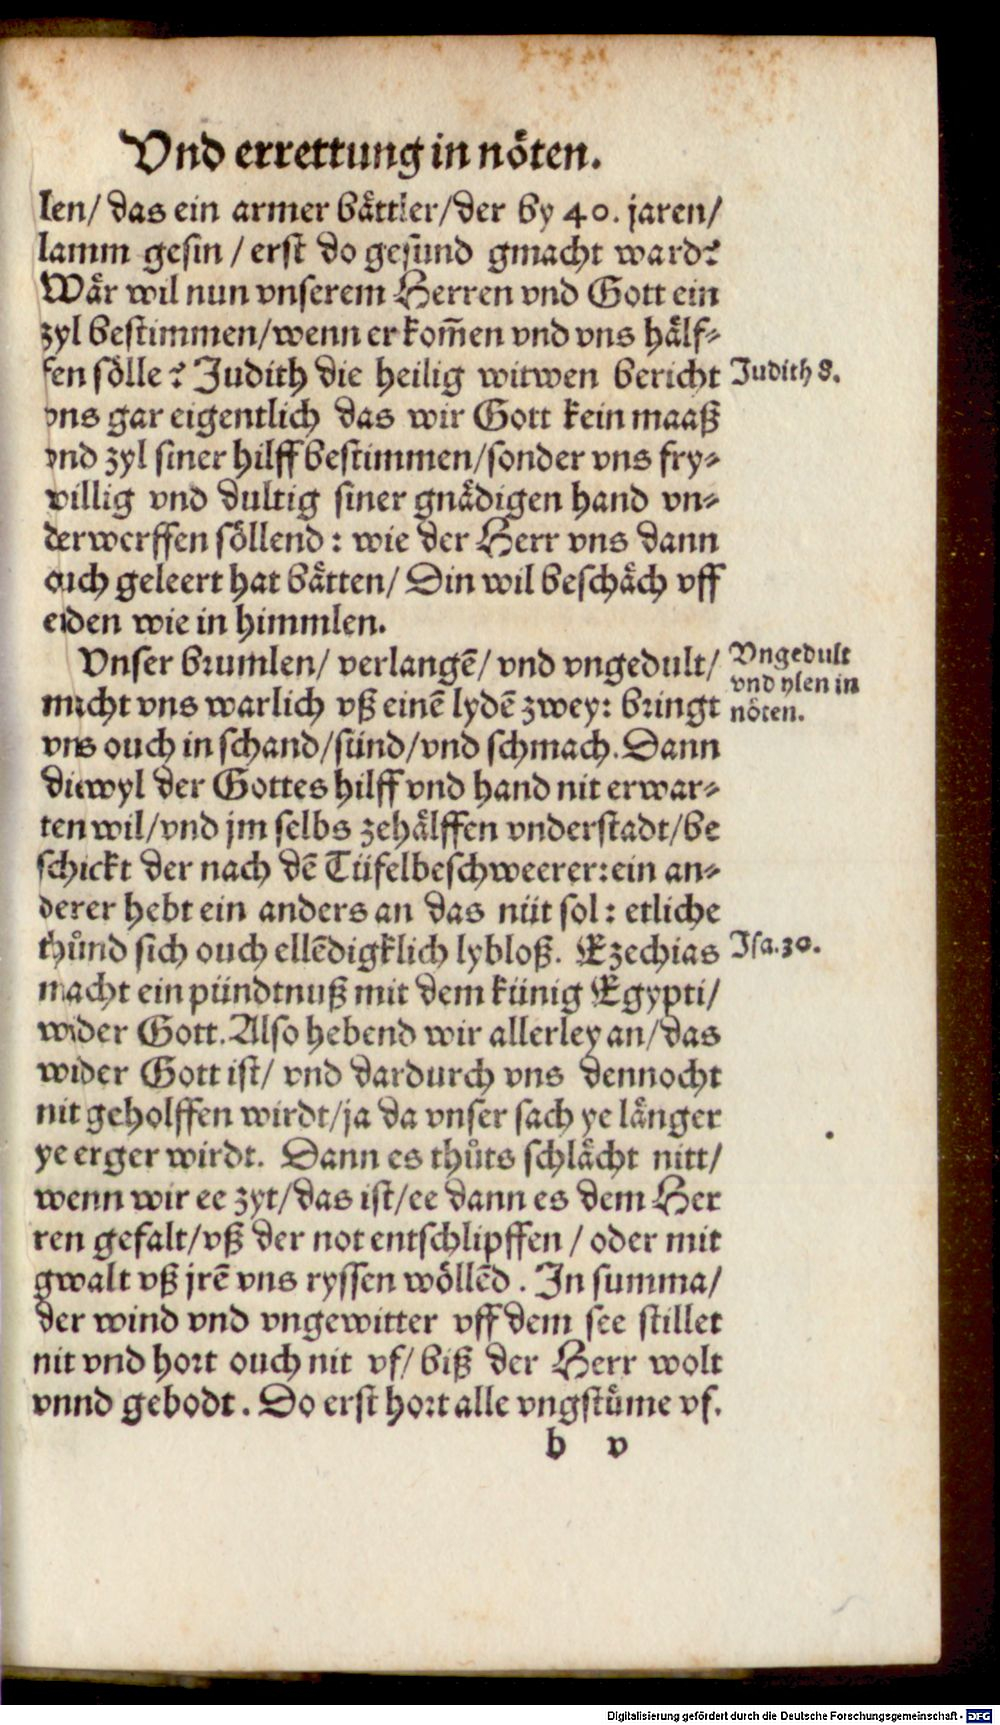 Vnd errettung in nöten.
len/ das ein armer bättler/der by 40. jaren/
lamm gesin / erst do gesund gmacht ward?
Wär wil nun vnserem Herren vnd Gott ein
zyl bestimmen/wenn er kom̄en vnd vns hälf⸗
fen sölle? Judith die heilig witwen bericht
Judith 8.
vns gar eigentlich das wir Gott kein maaß
vnd zyl siner hilff bestimmen/sonder vns fry⸗
willig vnd dultig siner gnädigen hand vn⸗
derwerffen söllend: wie der Herr vns dann
ouch geleert hat bätten/ Din wil beschäch vff
erden wie in himmlen.
Vnser brumlen/ verlangē/ vnd vngedult/
Vngedult
vnd ylen in
nöten.
macht vns warlich vß einē lydē zwey: bringt
vns ouch in schand/sünd/vnd schmach. Dann
diewyl der Gottes hilff vnd hand nit erwar⸗
ten wil/vnd jm selbs zehälffen vnderstadt/be
schickt der nach dē Tüfelbeschweerer: ein an⸗
derer hebt ein anders an das nüt sol: etliche
thůnd sich ouch ellēdigklich lybloß. Ezechias
Isa.30.
macht ein pündtnuß mit dem künig Egypti/
wider Gott. Also hebend wir allerley an/das
wider Gott ist/ vnd dardurch vns dennocht
nit geholffen wirdt/ja da vnser sach ye länger
ye erger wirdt. Dann es thůts schlächt nitt/
wenn wir ee zyt/das ist/ee dann es dem Her
ren gefalt/vß der not entschlipffen / oder mit
gwalt vß jrē vns ryssen wöllēd. In summa/
der wind vnd vngewitter vff dem see stillet
nit vnd hort ouch nit vf/ biß der Herr wolt
vnnd gebodt. Do erst hort alle vngstüme vf.
b v
Digitalisierung gefördert durch die Deutsche Forschungsgemeinschaft - DFG